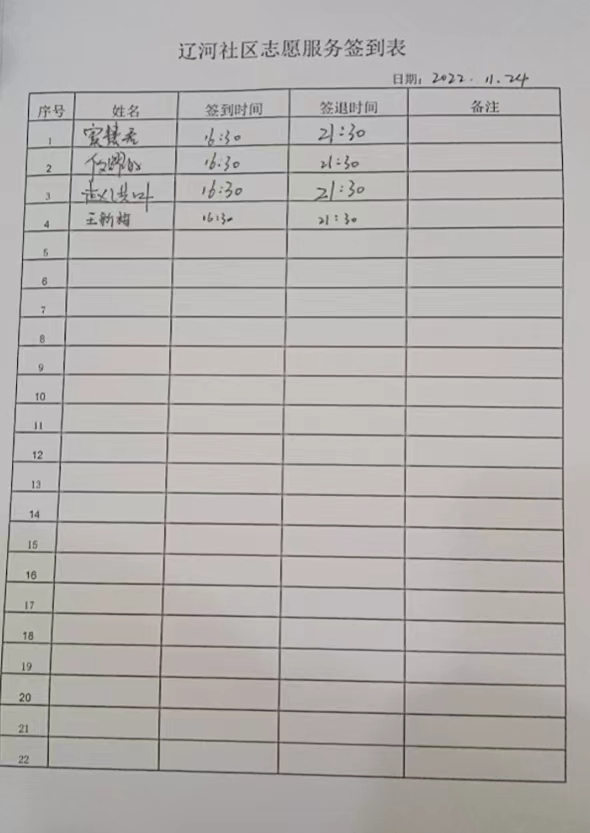 辽河社区志愿服务签到表
日期：2022.11.24
序号 姓名 签到时间 签退时间 备注
1 16:30 21:30
2 16:30 21:30
3 16:30 21:30
4 王新梅 16:30 21:30
5
6
7
8
9
10
11
12
13
14
15
16
17
18
19
20
21
22